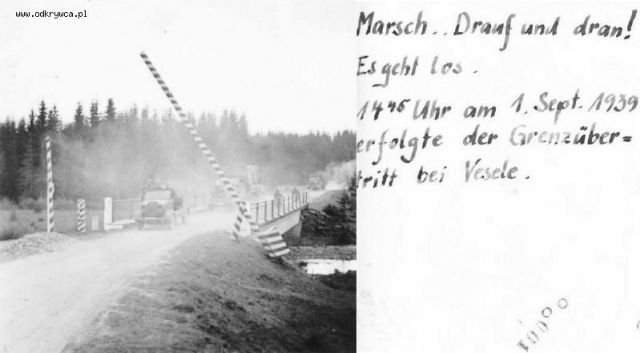 www.odkrywca.pl
Marsch.. Drauf und dran!
Es geht los.
14⁴⁵ Uhr am 1. Sept. 1939
erfolgte der Grenzüber=
tritt bei Vesele.
1000